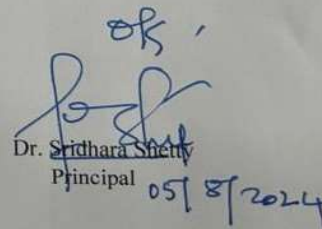 ok,
Dr. Sridhara Shetty
Principal
05/8/2024